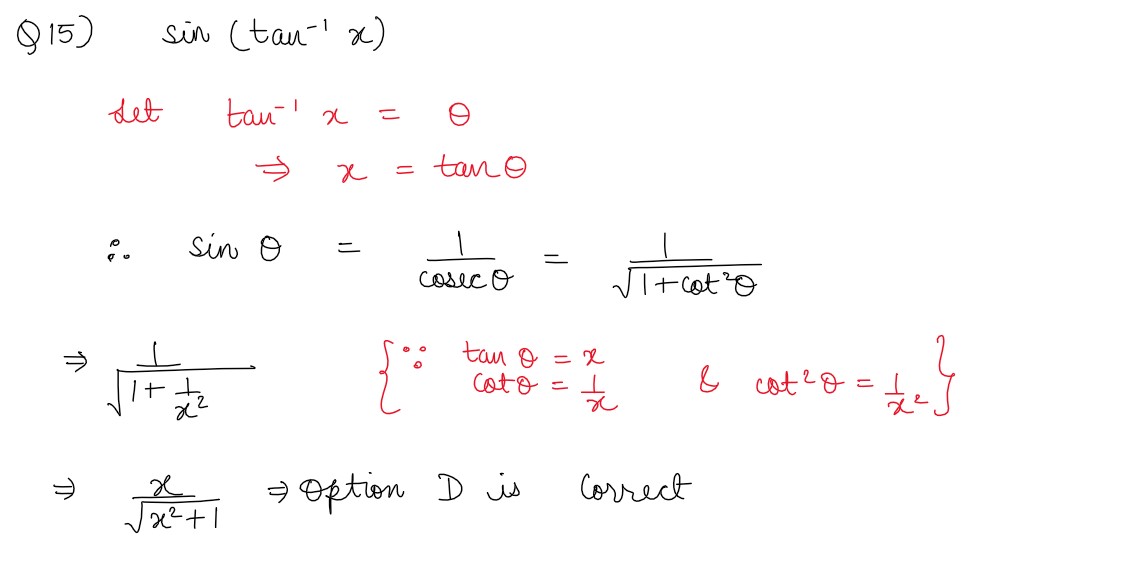 Q15) sin (tan⁻¹ x)
Let tan⁻¹ x = θ
⇒ x = tan θ
∴ sin θ = 1/cosec θ = 1/√(1+cot²θ)
⇒ 1/√(1+1/x²) {∵ tan θ = x
cot θ = 1/x & cot²θ = 1/x²}
⇒ x/√(x²+1) ⇒ Option D is Correct